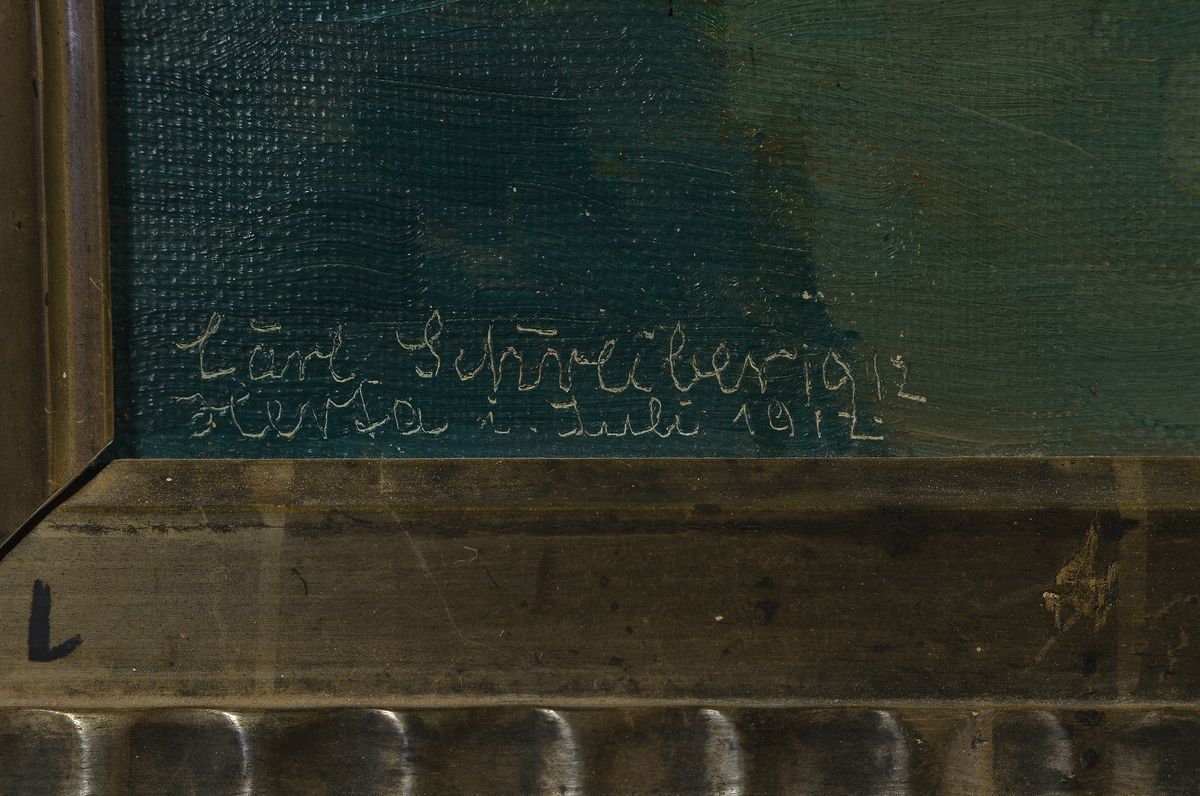 Carl Schreiber 1912
Herta i. Juli 1912
L